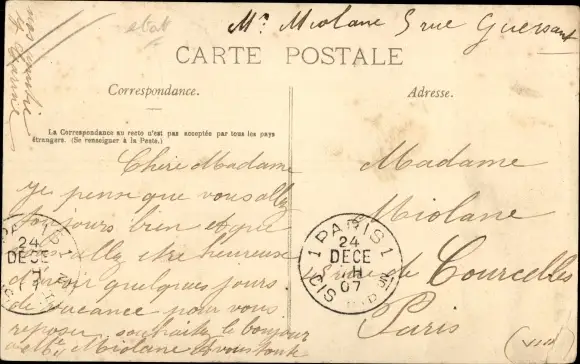 Mr Miolane 5 rue Guersant
CARTE POSTALE
Correspondance.
Adresse.
La Correspondance au recto n'est pas acceptée par tous les pays
étrangers. (Se renseigner à la Poste.)
Chère Madame
je pense que vous allez
toujours bien et que
vous allez etre heureuse
d'avoir quelques jours
de vacance pour vous
reposer souhaitez le bonjour
a Mr Miolane
Madame
Miolane
rue de Courcelles
Paris
PARIS 1
24
DECE
07
24
DECE